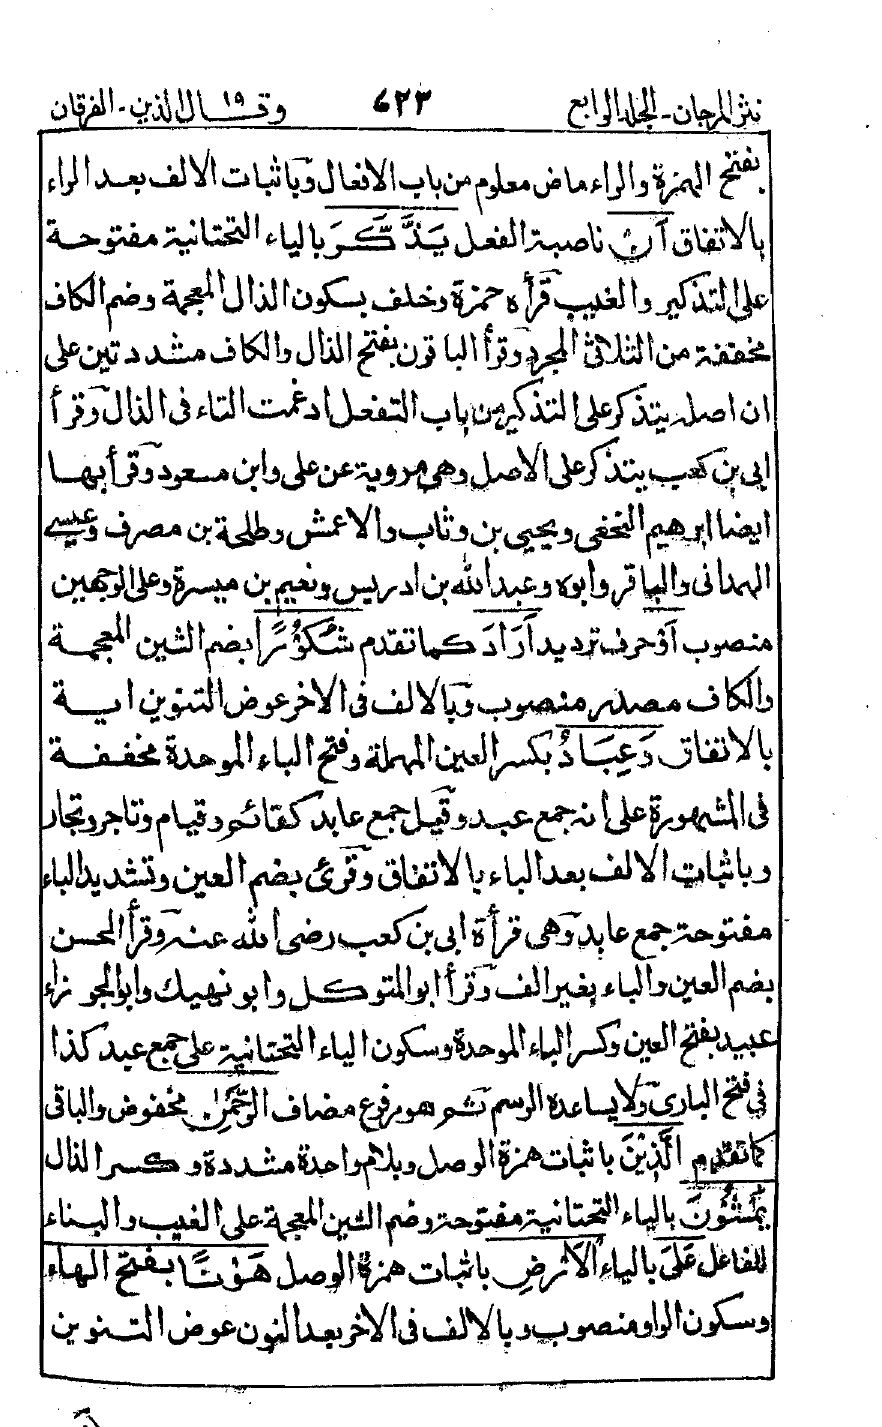 نثر المرجان - الجلد الرابع ٦٢٣ وقال الذين ١٩ - الفرقان
بفتح الهمزة والراء ماض معلوم من باب الافعال وباثبات الالف بعد الراء
بالاتفاق أَنْ ناصبة الفعل يَذَّكَّرَ بالياء التحتانية مفتوحة
على التذكير والغيب قرأه حمزة وخلف بسكون الذال المعجمة وضم الكاف
مخففة من الثلاثي المجرد وقرأ الباقون بفتح الذال والكاف مشددتين على
ان اصله يتذكر على التذكير من باب التفعل ادغمت التاء فى الذال وقرأ
ابى بن كعب يتذكر على الاصل وهى مروية عن على وابن مسعود وقرأ بها
ايضا ابرهيم النخعى ويحيى بن وثاب والاعمش وطلحة بن مصرف وعيسى
الهمدانى والباقر وابوه وعبد الله بن ادريس ونعيم بن ميسرة وعلى الوجهين
منصوب أَوْ حرف ترديد أَرَادَ كما تقدم شُكُوْرًا بضم الشين المعجمة
والكاف مصدر منصوب وبالالف فى الاخر عوض التنوين اية
بالاتفاق وَعِبَادُ بكسر العين المهملة وفتح الباء الموحدة مخففة
فى المشهورة على انه جمع عبد وقيل جمع عابد كقائم وقيام وتاجر وتجار
وباثبات الالف بعد الباء بالاتفاق وقرئ بضم العين وتشديد الباء
مفتوحة جمع عابد وهى قرأة ابى بن كعب رضى الله عنه وقرأ الحسن
بضم العين والباء بغير الف وقرأ ابو المتوكل وابو نهيك وابو الجوزاء
عبيد بفتح العين وكسر الباء الموحدة وسكون الياء التحتانية على جمع عبد كذا
فى فتح البارى ولا يساعده الرسم ثم هو مرفوع مضاف الرَّحْمٰنِ مخفوض والباقى
كما تقدم الَّذِيْنَ باثبات همزة الوصل وبلام واحدة مشددة وكسر الذال
يَمْشُوْنَ بالياء التحتانية مفتوحة وضم الشين المعجمة على الغيب والبناء
للفاعل عَلَى بالياء الْاَرْضِ باثبات همزة الوصل هَوْنًا بفتح الهاء
وسكون الواو منصوب وبالالف فى الاخر بعد النون عوض التنوين